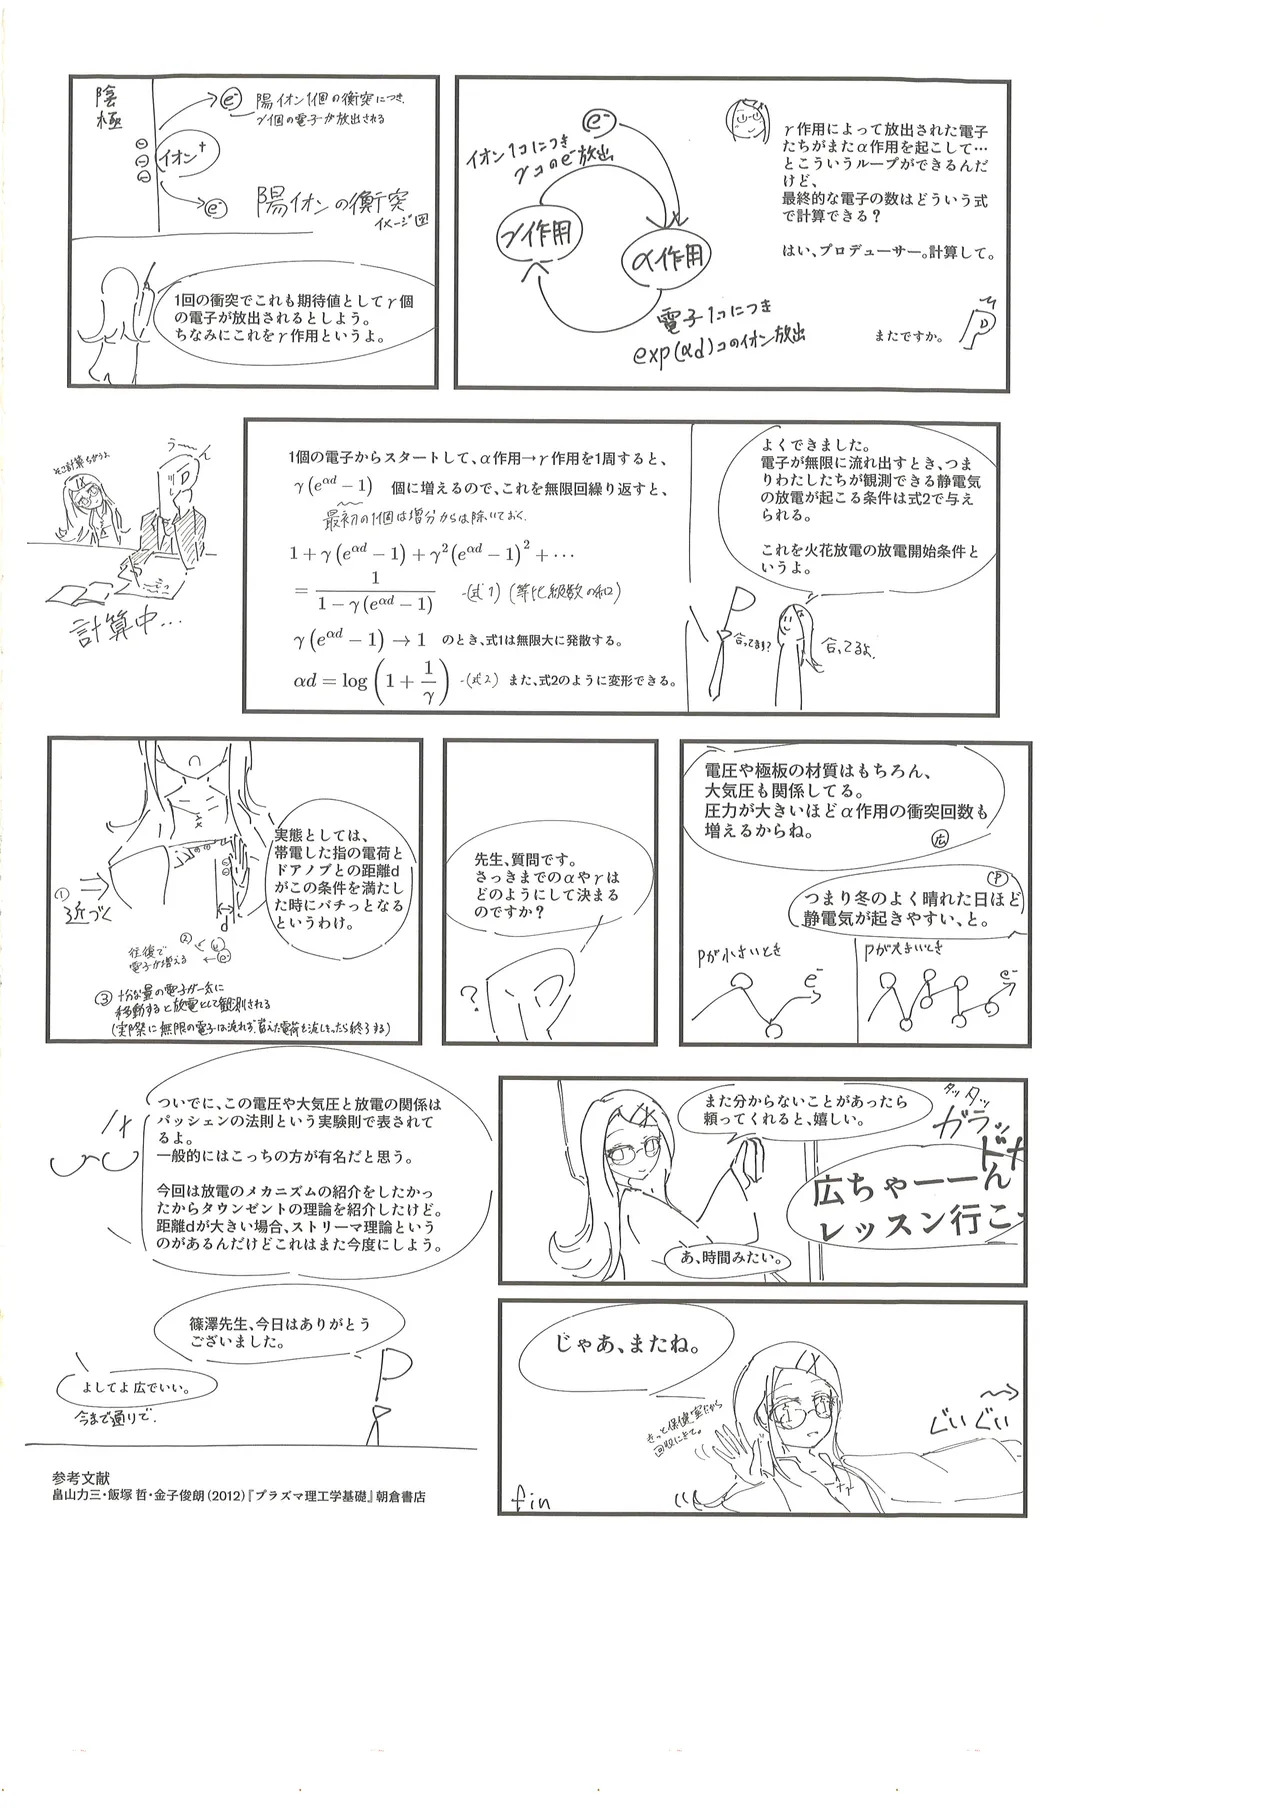 陰極
e⁻
陽イオン1個の衝突につき、
γ個の電子が放出される
イオン⁺
e⁻
陽イオンの衝突
イメージ図
1回の衝突でこれも期待値としてγ個
の電子が放出されるとしよう。
ちなみにこれをγ作用というよ。
e⁻
イオン1コにつき
γコのe⁻放出
γ作用
α作用
電子1コにつき
exp(αd)コのイオン放出
γ作用によって放出された電子
たちがまたα作用を起こして…
とこういうループができるんだ
けど、
最終的な電子の数はどういう式
で計算できる？
はい、プロデューサー。計算して。
またですか。
P
うーん
そこ計算ちがうよ
P
計算中…
1個の電子からスタートして、α作用→γ作用を1周すると、
γ(e^{αd} − 1) 個に増えるので、これを無限回繰り返すと、
最初の1個は増分からは除いておく.
1 + γ(e^{αd} − 1) + γ²(e^{αd} − 1)² + ···
= 1 / (1 − γ(e^{αd} − 1)) -(式1) (等比級数の和)
γ(e^{αd} − 1) → 1 のとき、式1は無限大に発散する。
αd = log(1 + 1/γ) -(式2) また、式2のように変形できる。
よくできました。
電子が無限に流れ出すとき、つま
りわたしたちが観測できる静電気
の放電が起こる条件は式2で与え
られる。
これを火花放電の放電開始条件と
いうよ。
P
合ってます？
合ってるよ.
実態としては、
帯電した指の電荷と
ドアノブとの距離d
がこの条件を満たし
た時にバチっとなる
というわけ。
①
近づく
d
②
往復で
電子が増える
e⁻
③十分な量の電子が一気に
移動すると放電として観測される
(実際に無限の電子は流れず、蓄えた電荷を流しきったら終了する)
先生、質問です。
さっきまでのαやγは
どのようにして決まる
のですか？
?
電圧や極板の材質はもちろん、
大気圧も関係してる。
圧力が大きいほどα作用の衝突回数も
増えるからね。
広
P
つまり冬のよく晴れた日ほど
静電気が起きやすい、と。
Pが小さいとき
e⁻
Pが大きいとき
e⁻
ついでに、この電圧や大気圧と放電の関係は
パッシェンの法則という実験則で表されて
るよ。
一般的にはこっちの方が有名だと思う。
今回は放電のメカニズムの紹介をしたかっ
たからタウンゼントの理論を紹介したけど。
距離dが大きい場合、ストリーマ理論という
のがあるんだけどこれはまた今度にしよう。
篠澤先生、今日はありがとう
ございました。
P
よしてよ 広でいい。
今まで通りで.
また分からないことがあったら
頼ってくれると、嬉しい。
タッタッ
ガラッ
広ちゃーーん
レッスン行こ
あ、時間みたい。
じゃあ、またね。
きっと保健室だから
回収にきて。
ぐいぐい
fin
参考文献
畠山力三・飯塚 哲・金子俊朗(2012)『プラズマ理工学基礎』朝倉書店